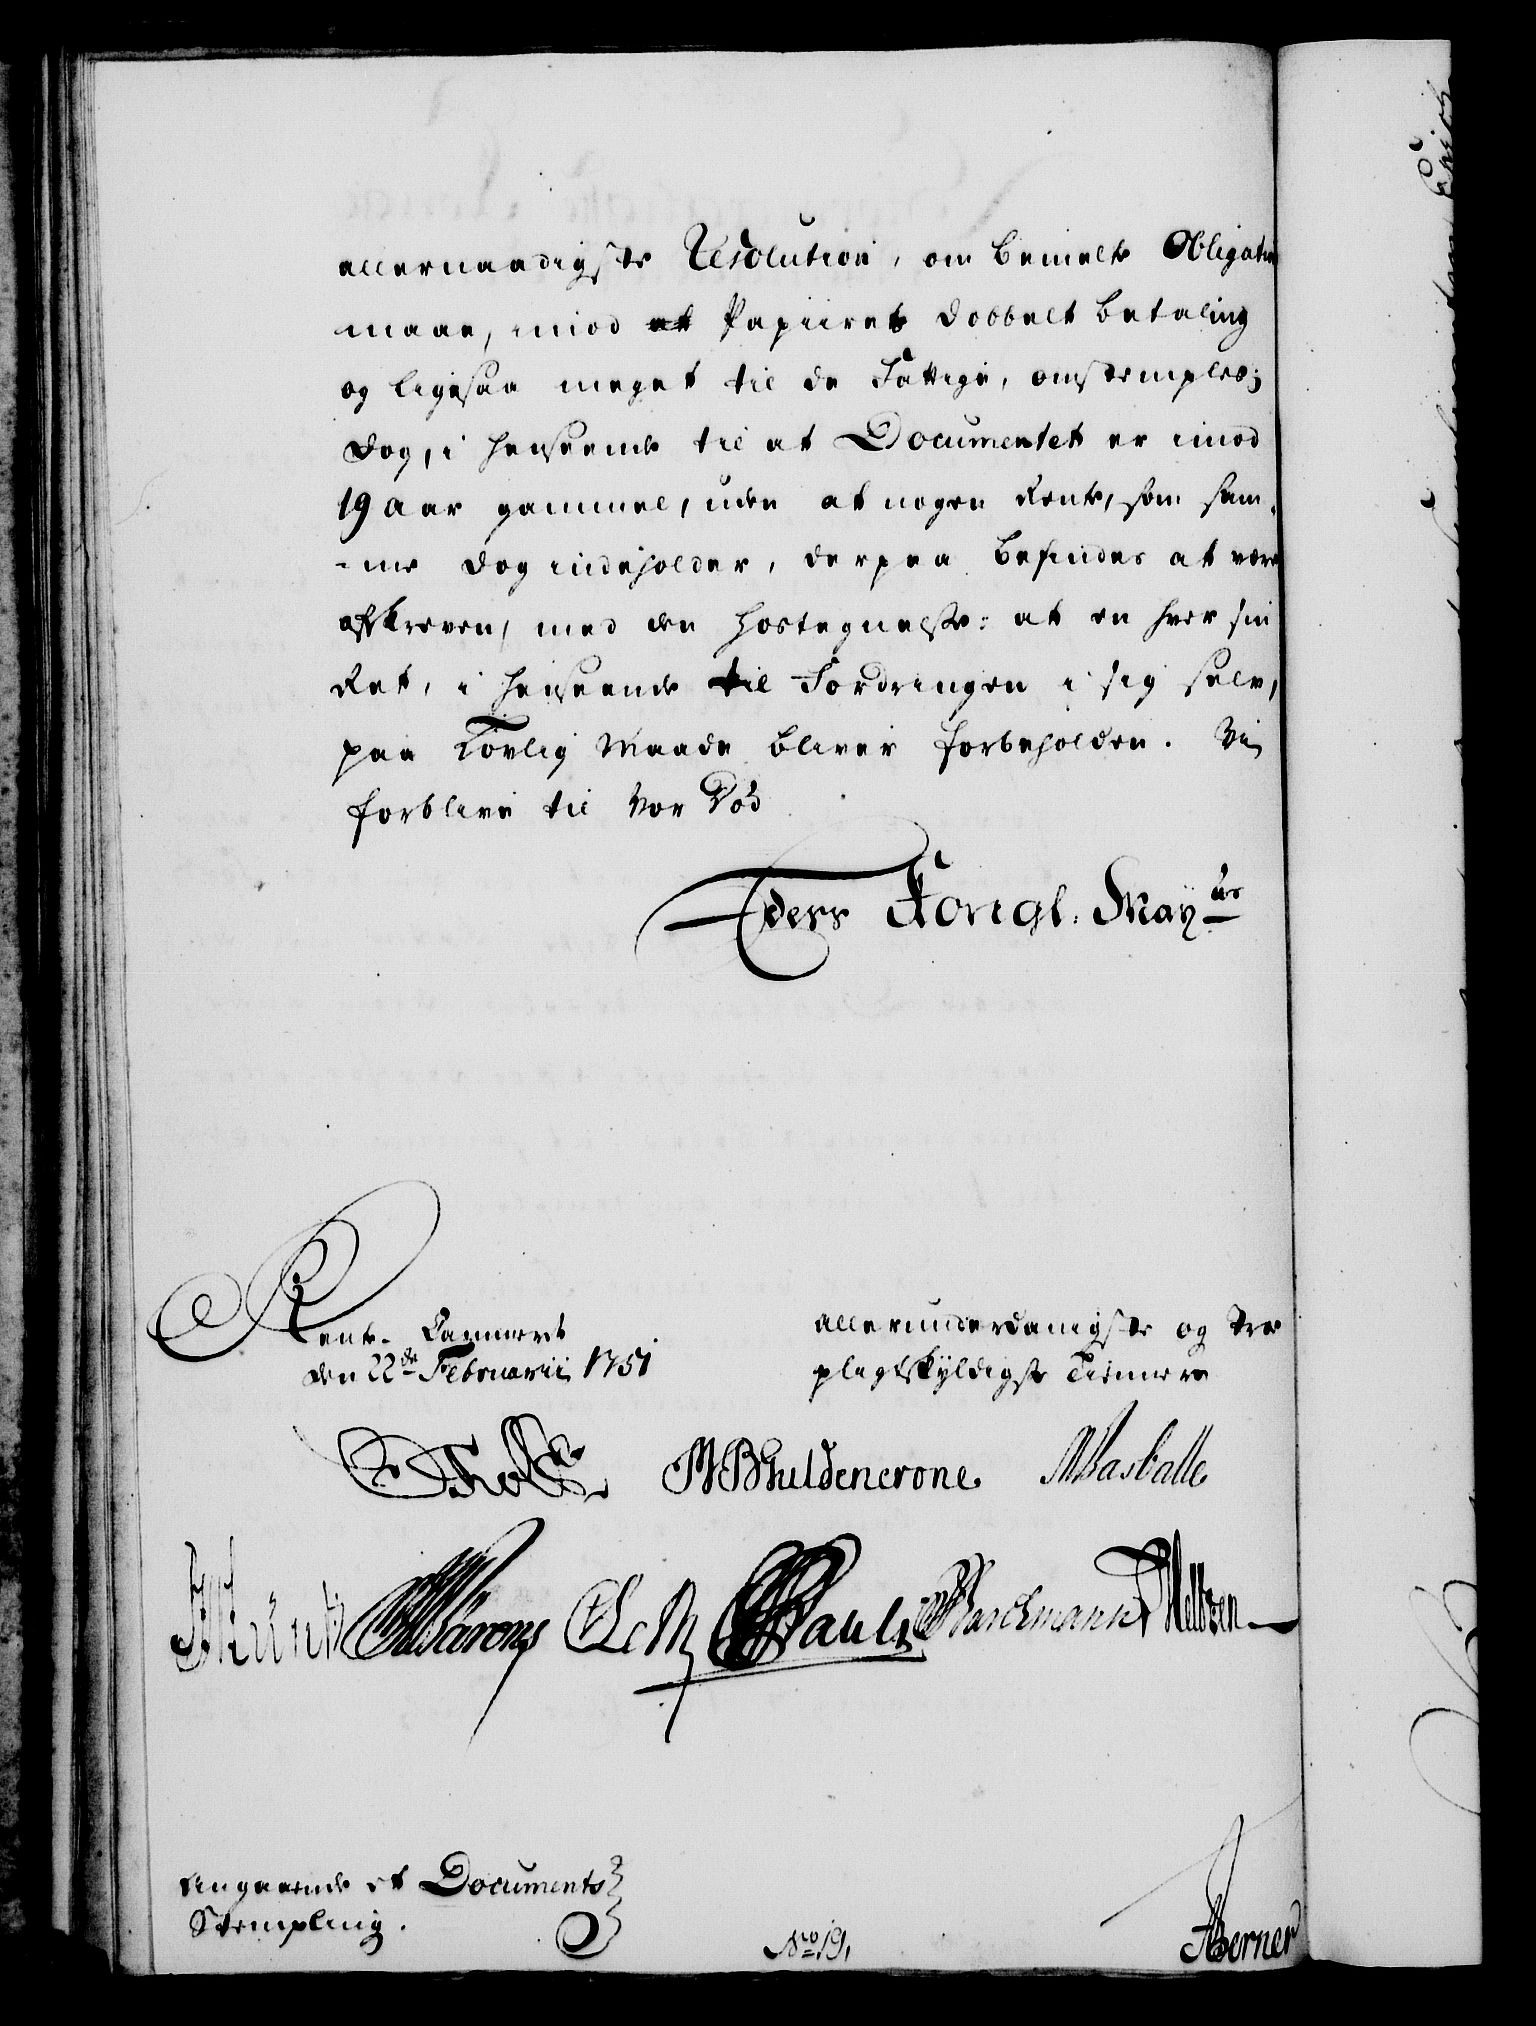 allernaadigste Resolution, om bemelte Obligation
maae, imod et Papiirets dobbelt betaling
og ligesaa meget til de Fattige, omstemples;
dog, i henseende til at Documentet er imod
19 Aar gammel, uden at nogen Rente, som sam-
-me dog indeholder, derpaa befindes at være
afskreven, med den Hostegnelse: at en hver sin
Ret, i henseende til Fordringen i sig selv,
paa Lovlig Maade bliver forbeholden. Vi
forblive til vor Död
Eders Kongl. Mayts
Rente-Cammeret
den 22de Februarii 1751
allerunderdanigste og troe
pligtskyldigste Tienere
Holst MBGuldencrone
Pauli
Angaaende et Documents
Stempling.
No 19.
Berner